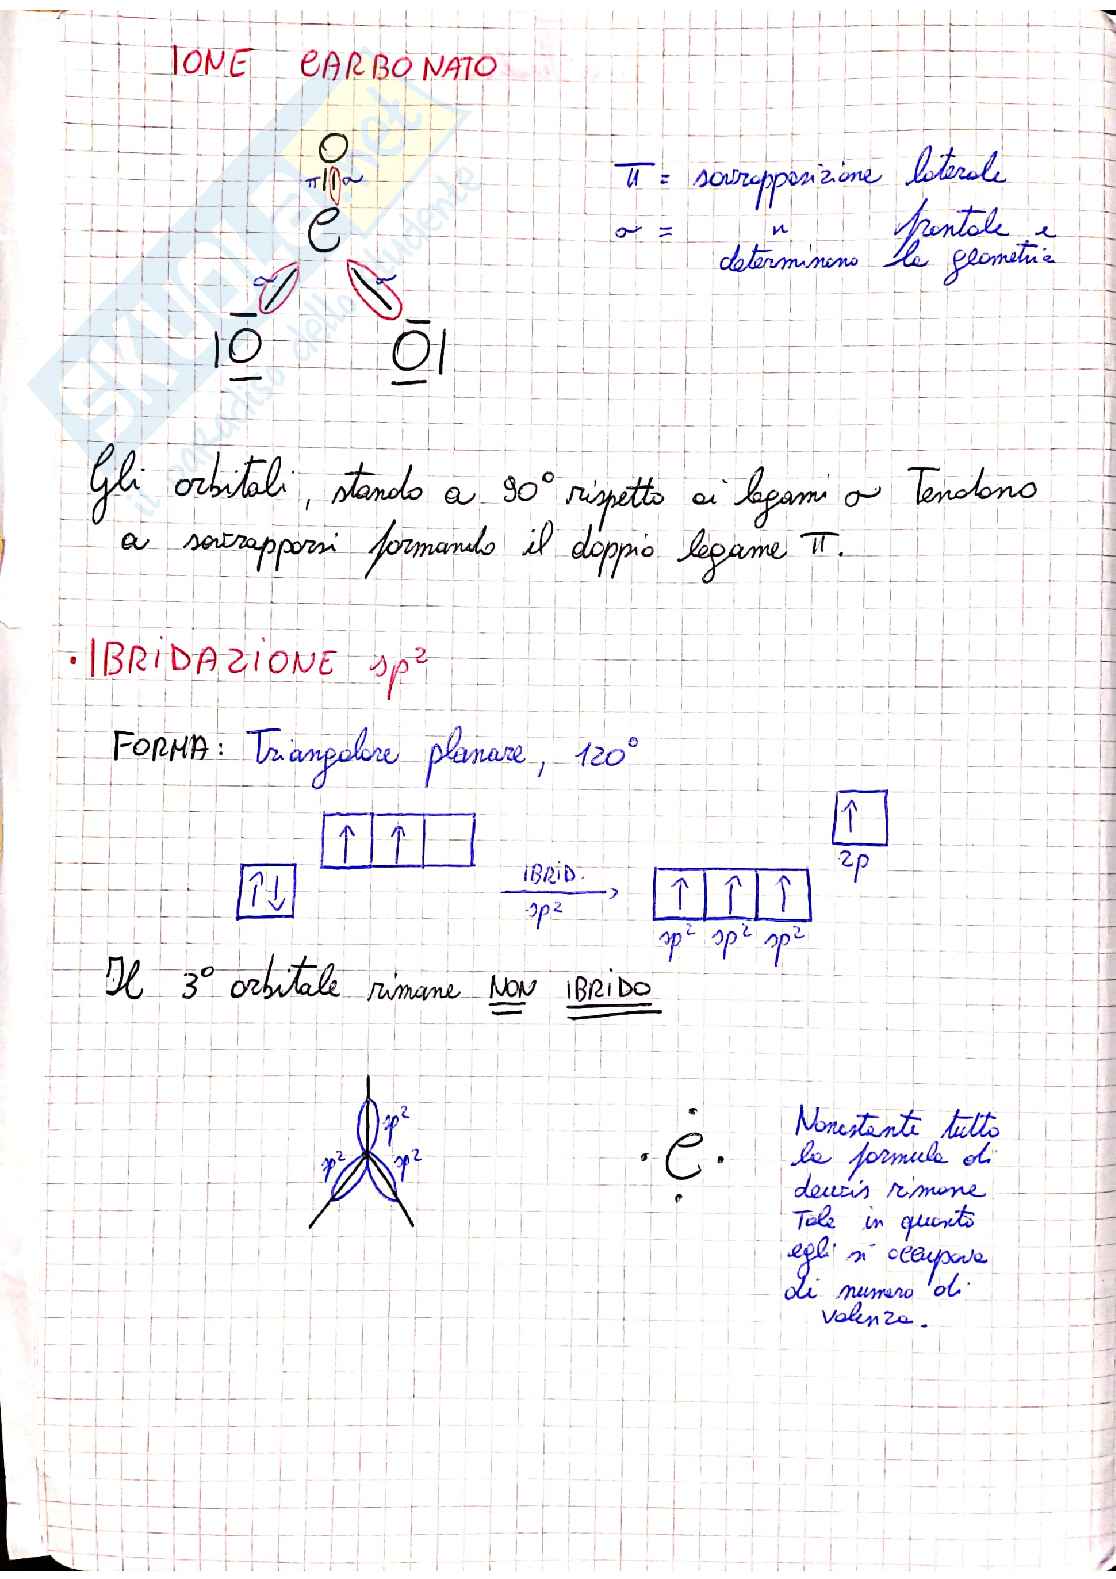 IONE CARBONATO
O
π σ
C
σ σ
|O O|
π = sovrapposizione laterale
σ = " frontale e
determinano la geometria
Gli orbitali, stando a 90° rispetto ai legami σ Tendono
a sovrapporsi formando il doppio legame π.
• IBRIDAZIONE sp²
FORMA: Triangolare planare, 120°
↑ ↑
↑
2p
↑↓
IBRID.
sp²
↑ ↑ ↑
sp² sp² sp²
Il 3° orbitale rimane NON IBRIDO
sp²
sp² sp²
C
Nonostante tutto
la formula di
lewis rimane
Tale in quanto
egli si occupava
di numero di
valenza.
SKUOLA.net
il paradiso dello studente